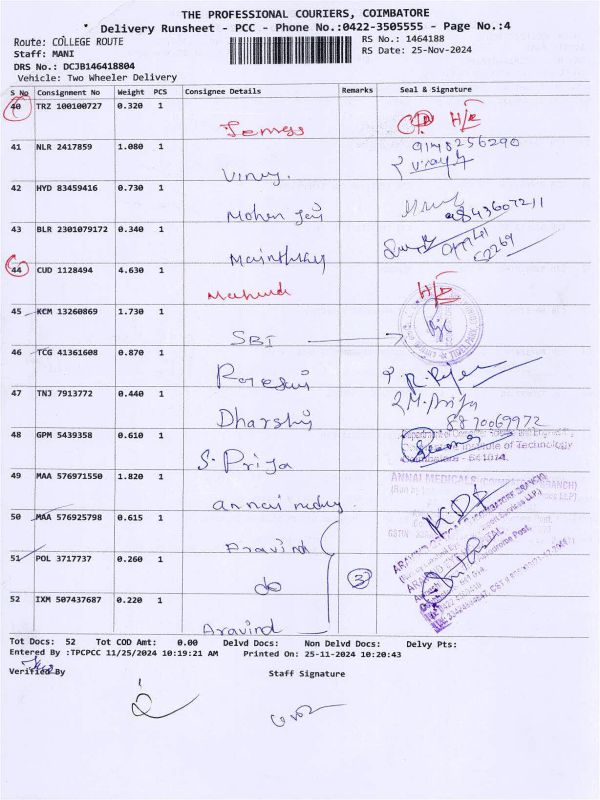 THE PROFESSIONAL COURIERS, COIMBATORE
Delivery Runsheet - PCC - Phone No.:0422-3505555 - Page No.:4
Route: COLLEGE ROUTE
RS No.: 1464188
Staff: MANI
RS Date: 25-Nov-2024
DRS No.: DCJB146418804
Vehicle: Two Wheeler Delivery
S No Consignment No Weight PCS Consignee Details Remarks Seal & Signature
40 TRZ 100100727 0.320 1
H/E
41 NLR 2417859 1.080 1
9148256290
Vinay.
42 HYD 83459416 0.730 1
Mohan
9843607211
43 BLR 2301079172 0.340 1
44 CUD 1128494 4.630 1
H/E
45 KCM 13260869 1.730 1
SBI
46 TCG 41361608 0.870 1
47 TNJ 7913772 0.440 1
M. Priya
Dharshi
8870069972
48 GPM 5439358 0.610 1
Department of Computer Science and Engineering
Institute of Technology
Coimbatore - 641014
S. Priya
49 MAA 576971550 1.820 1
ANNAI MEDICALS
annai
50 MAA 576925798 0.615 1
Aravind
51 POL 3717737 0.260 1
3
do
52 IXM 507437687 0.220 1
Aravind
Tot Docs: 52 Tot COD Amt: 0.00 Delvd Docs: Non Delvd Docs: Delvy Pts:
Entered By :TPCPCC 11/25/2024 10:19:21 AM Printed On: 25-11-2024 10:20:43
Verified By Staff Signature